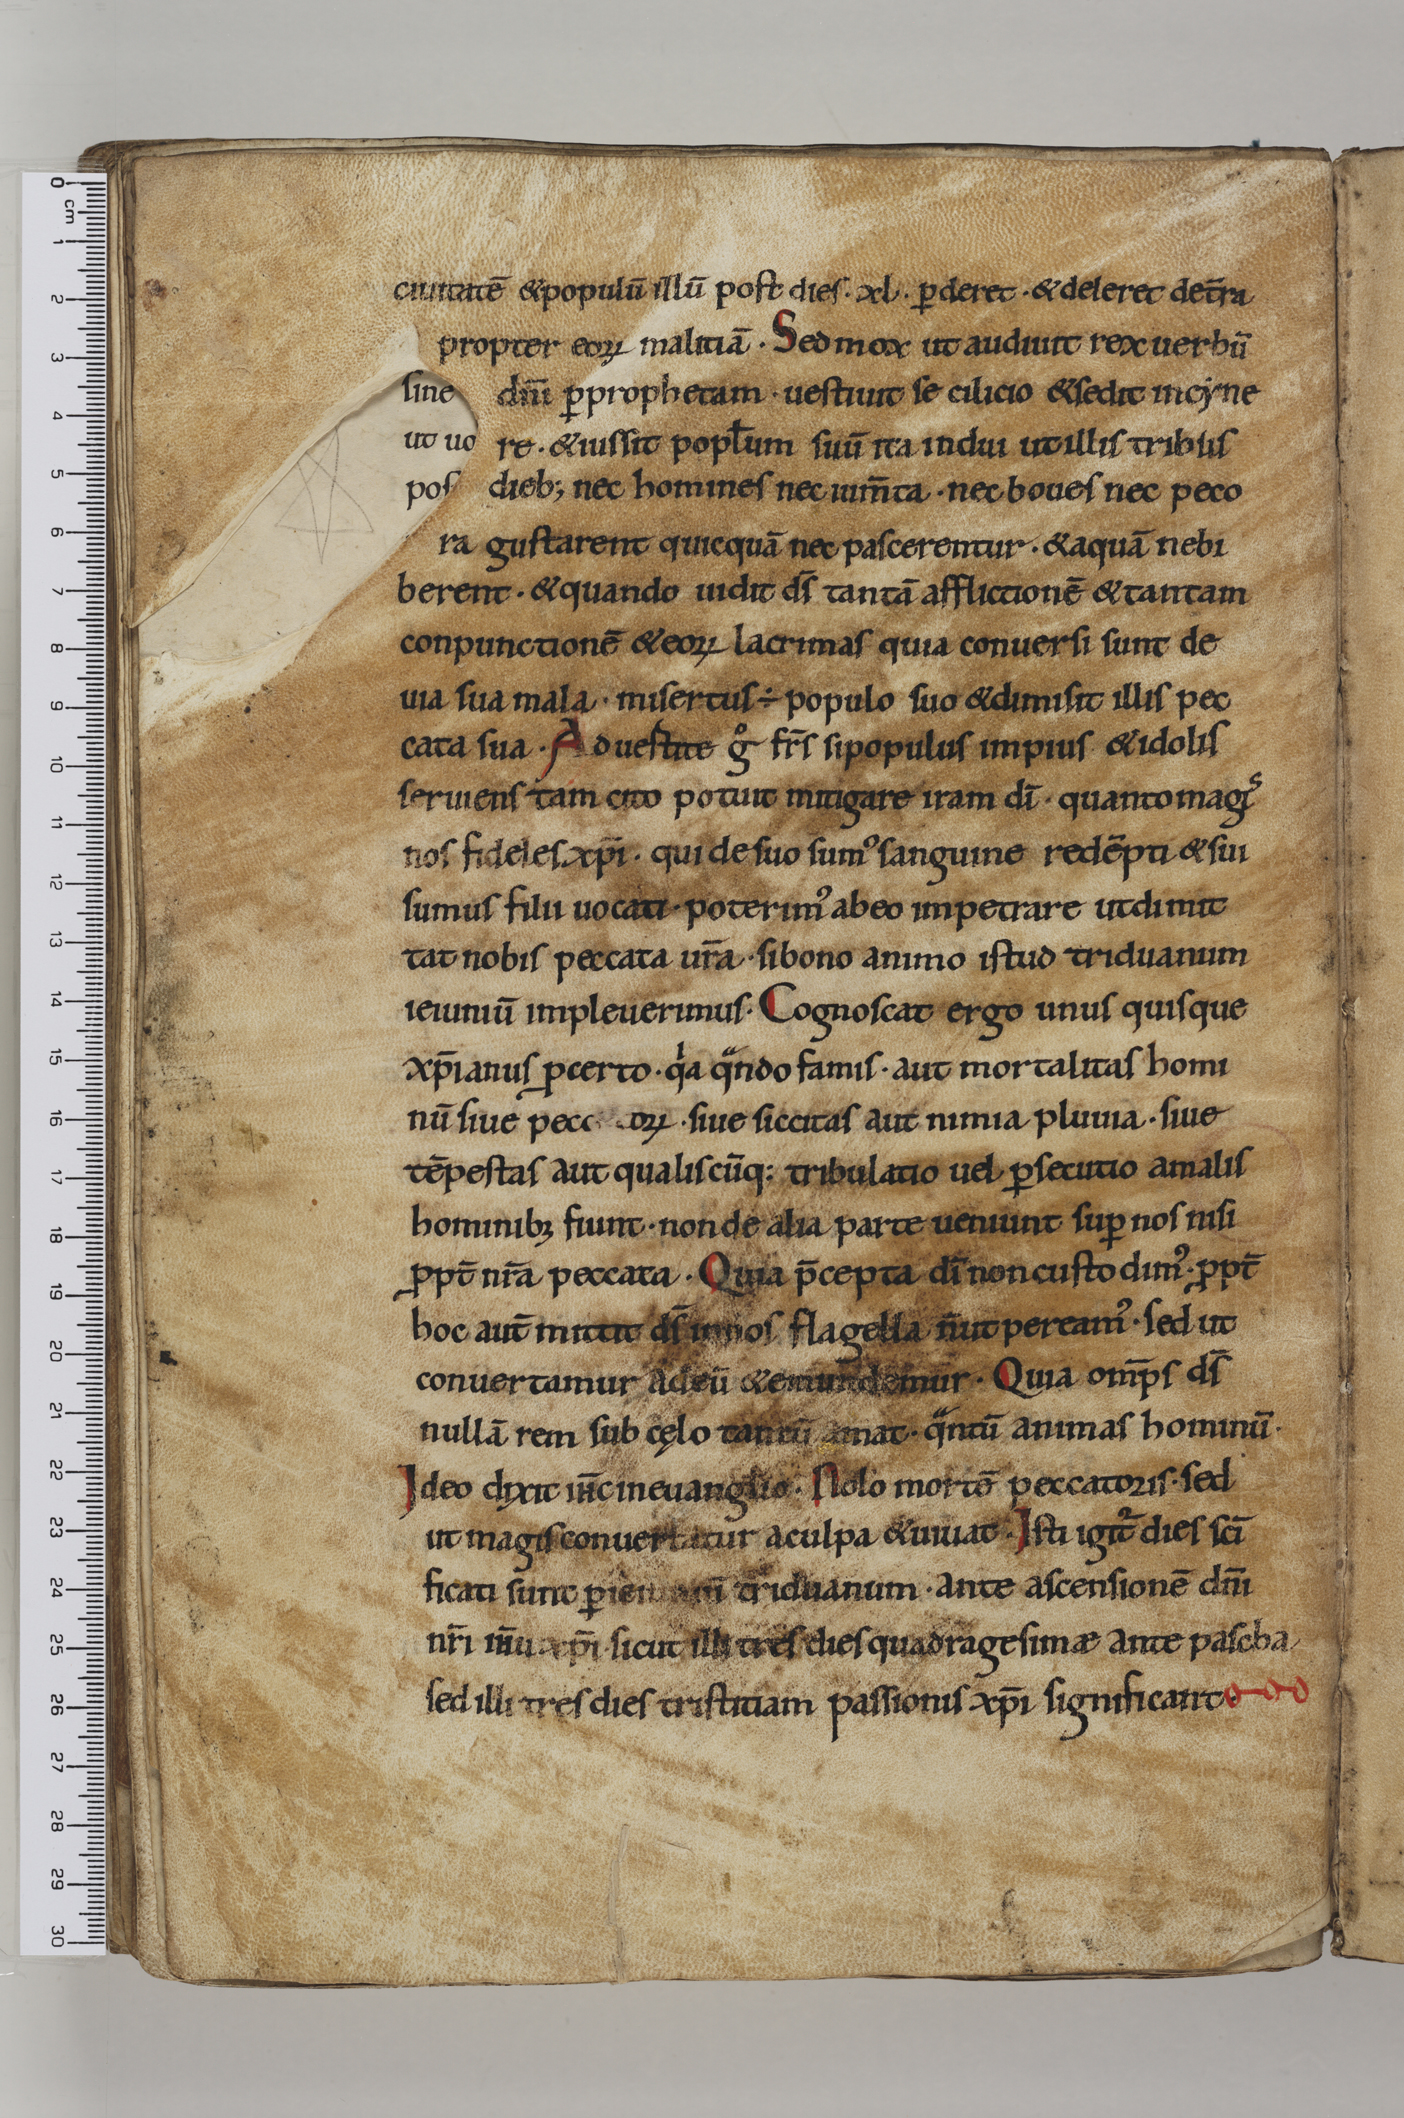 ciuitatē &populū illū post dies · xl · ꝑderet · &deleret det̄ra
propter eoꝝ malitiā · Sed mox ut audiuit rex uerbū
sine dn̄i ꝑprophetam · uestiuit se cilicio &sedit incẏne
ut uo re · &iussit popłum suū ita indui ut illis tribus
pos dieb; nec homines nec ium̄ta · nec boues nec peco
ra gustarent quicquā nec pascerentur · &aquā nebi
berent · &quando uidit ds̄ tantā afflictionē &tantam
conpunctionē &eoꝝ lacrimas quia conuersi sunt de
uia sua mala · misertus ÷ populo suo &dimisit illis pec
cata sua · Aduertite gͦ fr̄s si populus impius &idolis
seruiens tam cito potuit mitigare iram dī · quanto magꝭ
nos fideles xp̄i · qui de suo sumꝰ sanguine redēpti &sui
sumus filii uocati · poterimꝰ abeo impetrare utdimit
tat nobis peccata ur̄a · sibono animo istud triduanum
ieiuniū impleuerimus · Cognoscat ergo unus quisque
xp̄ianus ꝑcerto · qͥa qͣndo famis · aut mortalitas homi
nū siue pecc oꝝ · siue siccitas aut nimia pluuia · siue
tēpestas aut qualiscūq: tribulatio uel ꝑsecutio amalis
hominibꝫ fiunt · non de alia parte ueniunt suꝑ nos nisi
ꝓpt̄ nr̄a peccata · Quia p̄cepta dī non custodimꝰ · ꝓpt̄
hoc aut̄ mittit ds̄ in nos flagella n̄ ut pereamꝰ · sed ut
conuertamur ad eū &emundemur · Quia omp̄s ds̄
nullā rem sub cęlo tantū amat · qͣntū animas hominū ·
Ideo dixit ih̄c in euanglio · Nolo mortē peccatoris · sed
ut magis conuertatur aculpa &uiuat · Isti igit̉ dies scī
ficati sunt ꝑ triduanum · ante ascensionē dn̄i
nr̄i ih̄u xp̄i · sicut illi tres dies quadragesimæ ante pascha
sed illi tres dies tristitiam passionis xp̄i significant